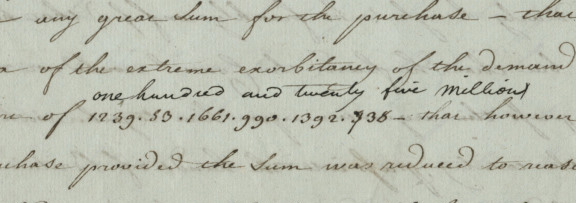 any great sum for the purchase – that
of the extreme exorbitancy of the demand
one hundred and twenty five millions
of 1239.53.1661.990.1392.938 – that however
purchase provided the sum was reduced to reas